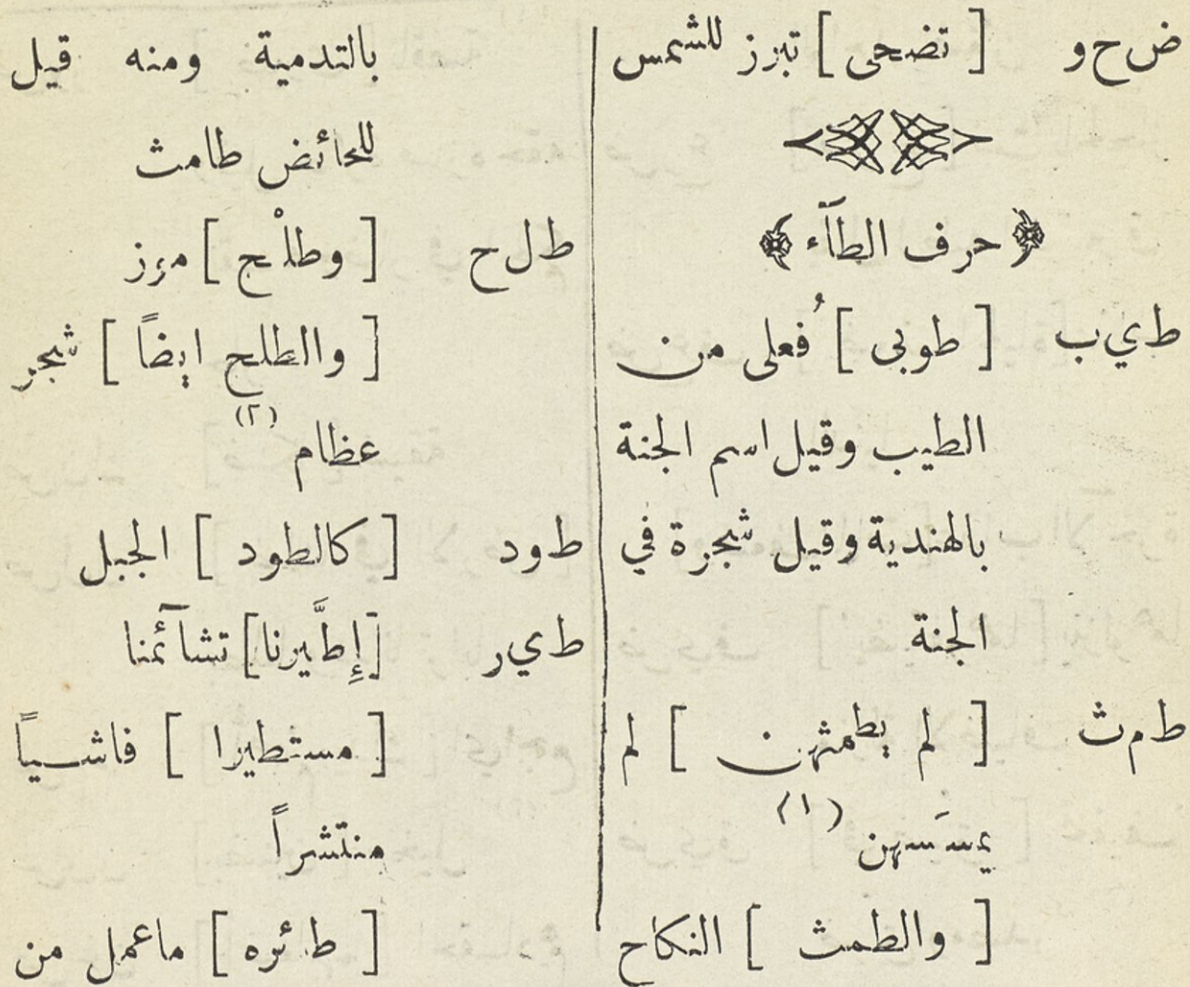 ض ح و [ تضحى ] تبرز للشمس
﴿ حرف الطآء ﴾
ط ي ب [ طوبى ] فُعلى من
الطيب وقيل اسم الجنة
بالهندية وقيل شجرة في
الجنة
ط م ث [ لم يطمثهن ] لم
يمسَسهن (١)
[ والطمث ] النكاح
بالتدمية ومنه قيل
للحائض طامث
ط ل ح [ وطلْح ] موز
[ والطلح ايضاً ] شجر
عظام (٢)
ط و د [ كالطود ] الجبل
ط ي ر [ إطَّيرنا ] تشآئمنا
[ مستطيرا ] فاشـيـاً
منتشراً
[ طئره ] ماعمل من